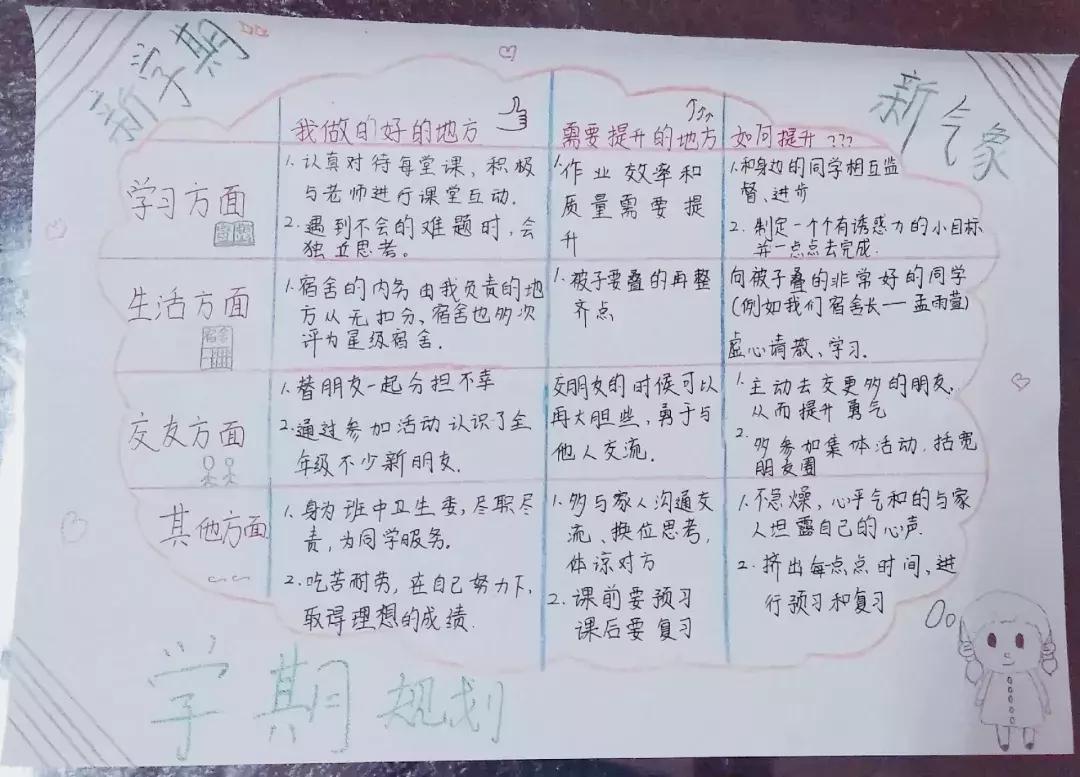 新学期
新气象
我做的好的地方
需要提升的地方
如何提升???
学习方面
1.认真对待每堂课,积极
与老师进行课堂互动.
2.遇到不会的难题时,会
独立思考。
1.作业效率和
质量需要提
升
1.和身边的同学相互监
督、进步
2.制定一个个有诱惑力的小目标
并一点点去完成.
生活方面
宿舍
1.宿舍的内务由我负责的地
方从无扣分,宿舍也多次
评为星级宿舍.
1.被子要叠的再整
齐点
向被子叠的非常好的同学
(例如我们宿舍长——孟雨萱)
虚心请教、学习.
交友方面
1.替朋友一起分担不幸
2.通过参加活动认识了全
年级不少新朋友.
交朋友的时候可以
再大胆些,勇于与
他人交流.
1.主动去交更多的朋友,
从而提升勇气
2.多参加集体活动,括宽
朋友圈
其他方面
1.身为班中卫生委,尽职尽
责,为同学服务。
2.吃苦耐劳,在自己努力下,
取得理想的成绩.
1.多与家人沟通交
流、换位思考,
体谅对方
2.课前要预习
课后要复习
1.不急燥,心平气和的与家
人坦露自己的心声.
2.挤出每点点时间、进
行预习和复习
学期规划